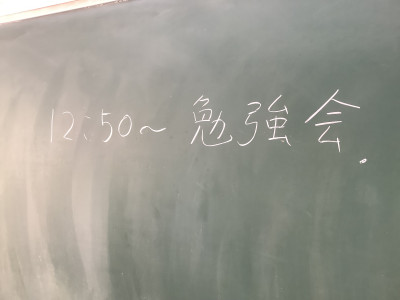 12:50~ 勉強会.